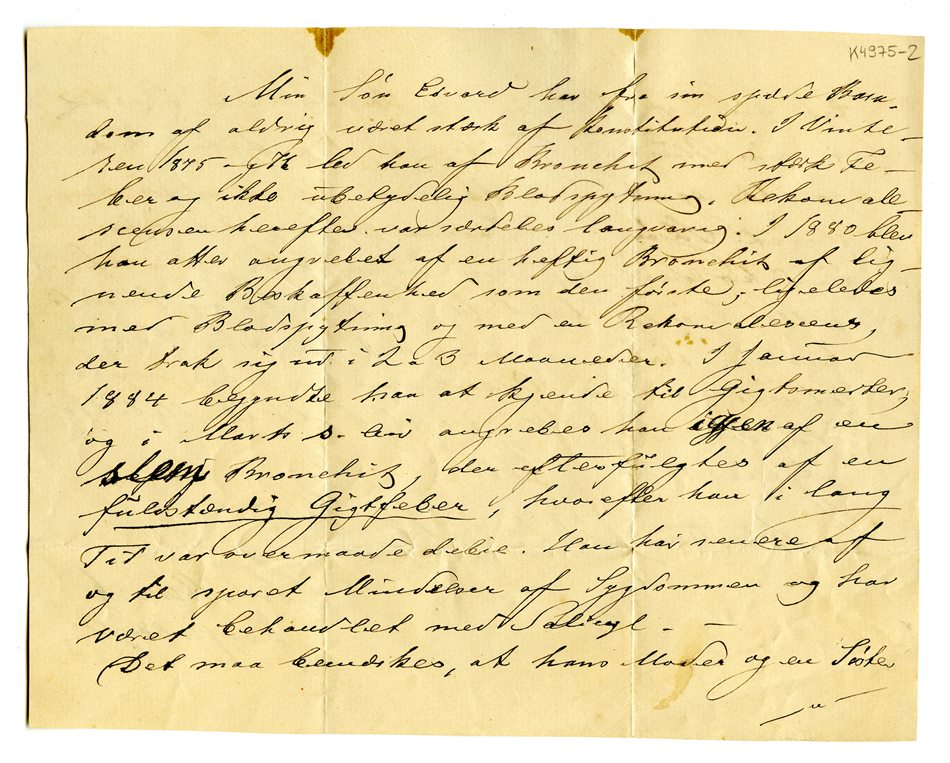 K4975-2
Min Søn Edvard har fra sin spæde Barn-
dom af aldrig været stærk af Konstitution. I Vinte-
ren 1875-76 led han af Bronchit med stærk Fe-
ber og ikke ubetydelig Blodspytning. Rekonvale
scensen herefter var særdeles langvarig. I 1880 blev
han atter angrebet af en heftig Bronchit af lig-
nende Beskaffenhed som den første, ligeledes
med Blodspytning og med en Rekonvalescens,
der trak sig ud i 2 a 3 Maaneder. I Januar
1884 begyndte han at kjende til Gigtsmerter,
og i Marts s. Aar angrebes han igjen af en
slem Bronchit, der efterfulgtes af en
fuldstændig Gigtfeber, hvorefter han i lang
Tid var overmaade debil. Han har senere af
og til sporet Mindelser af Sygdommen og har
været behandlet med Salicyl. -
Det maa bemærkes, at hans Moder og en Søster